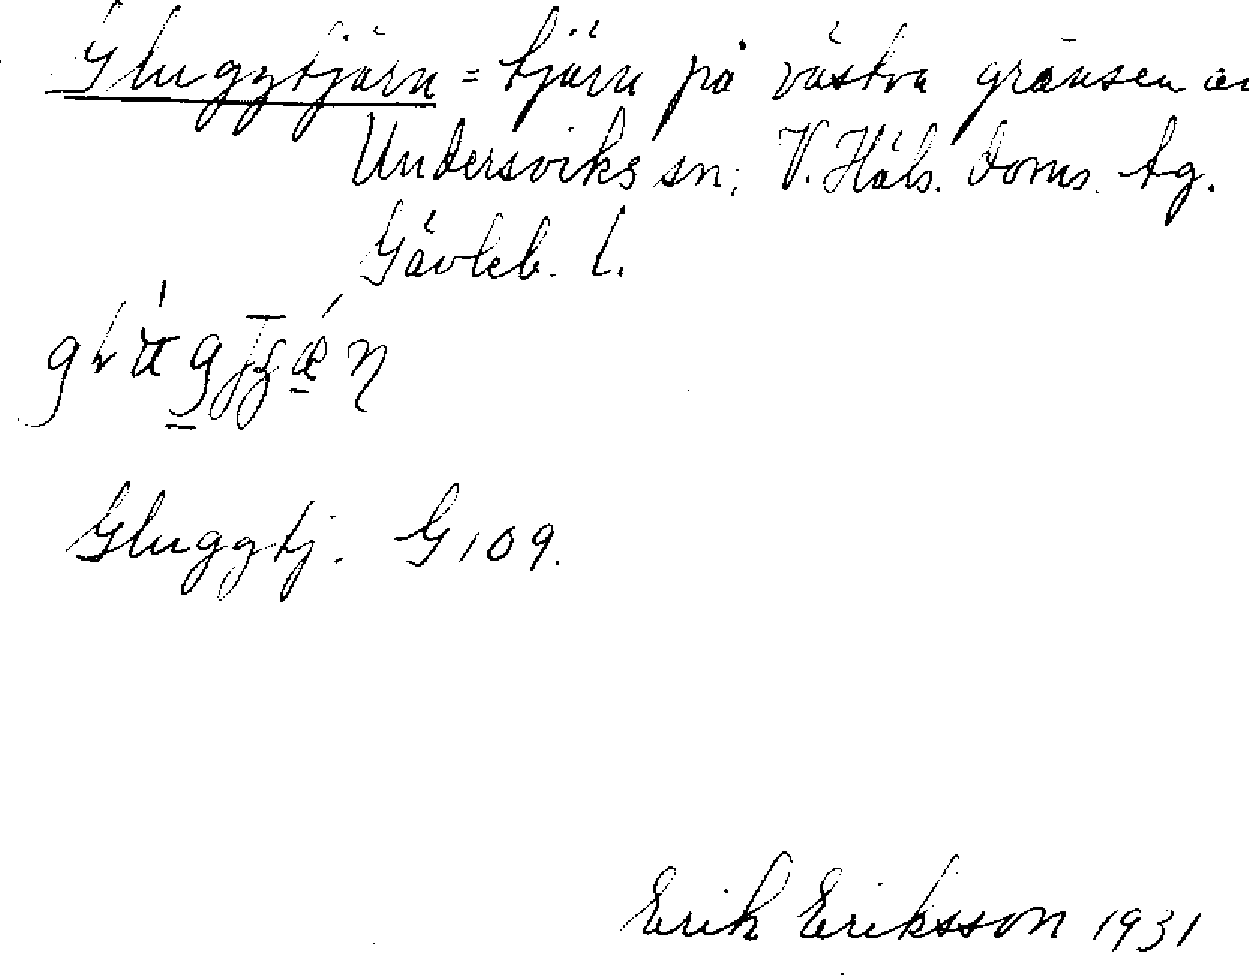 Gluggtjärn = tjärn på västra gränsen av
Undersviks sn, V. Häls. doms. tg.
Gävleb. l.
Gluggtj. G109.
Erik Eriksson 1931